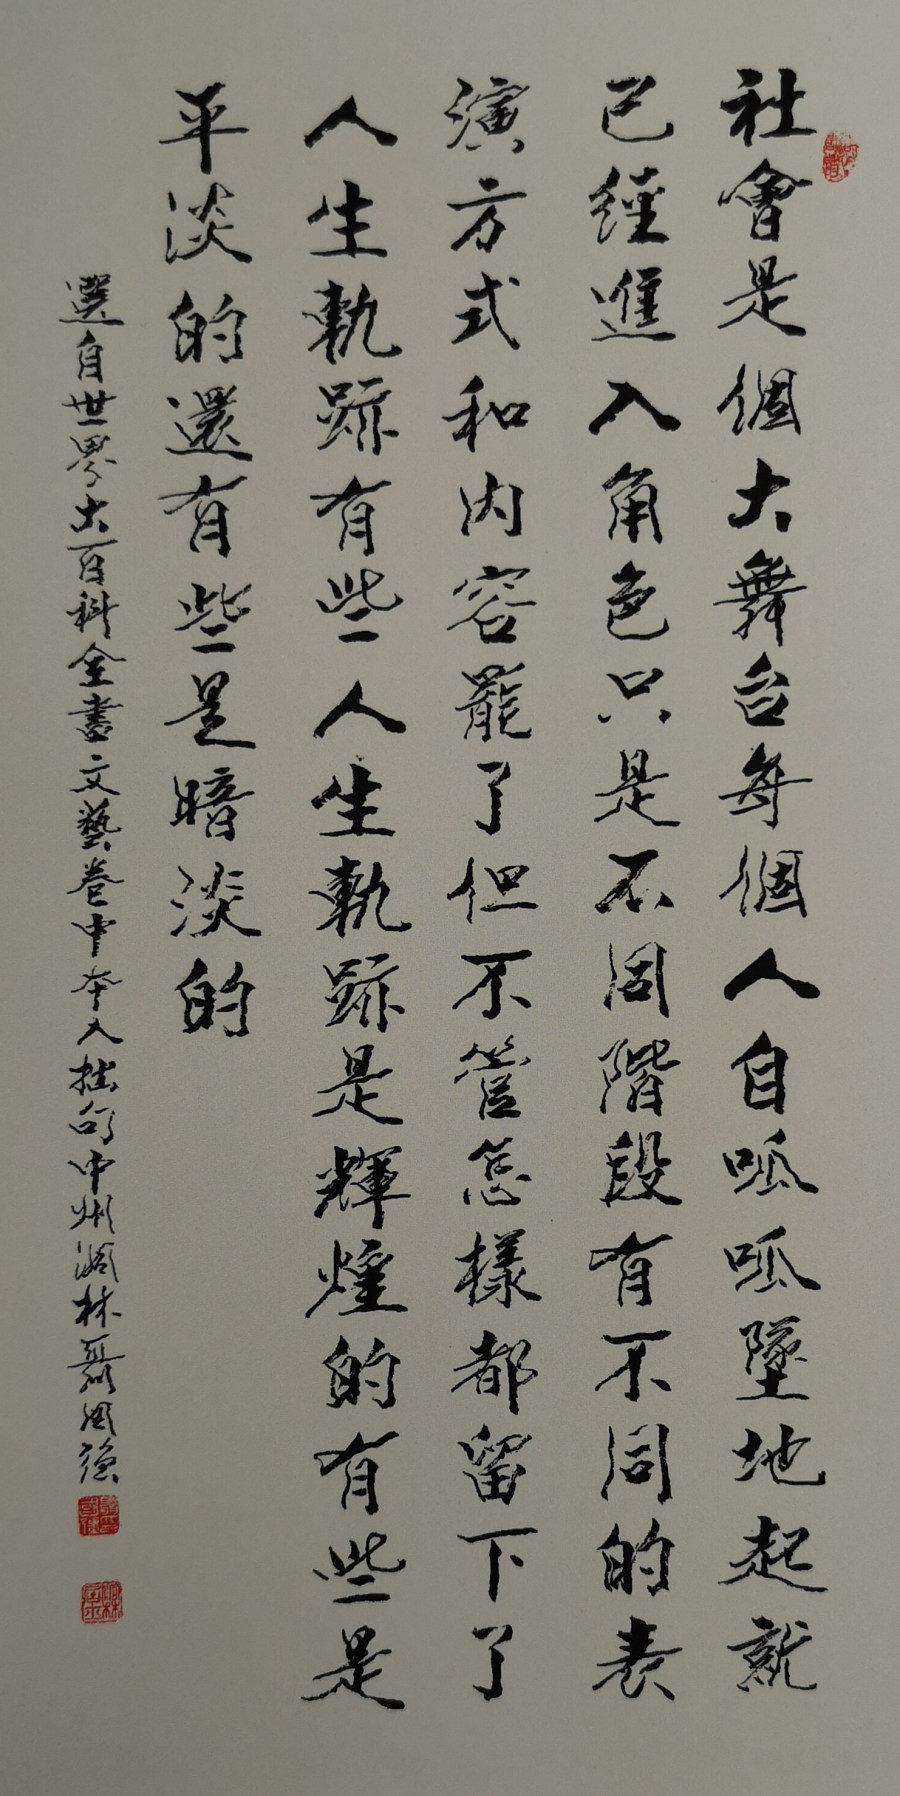 社會是個大舞台每個人自呱呱墜地起就
已經進入角色只是不同階段有不同的表
演方式和内容罷了但不管怎樣都留下了
人生軌跡有些人生軌跡是輝煌的有些是
平淡的還有些是暗淡的
選自世界大百科全書文藝卷中本人拙句中州澗林聶國強